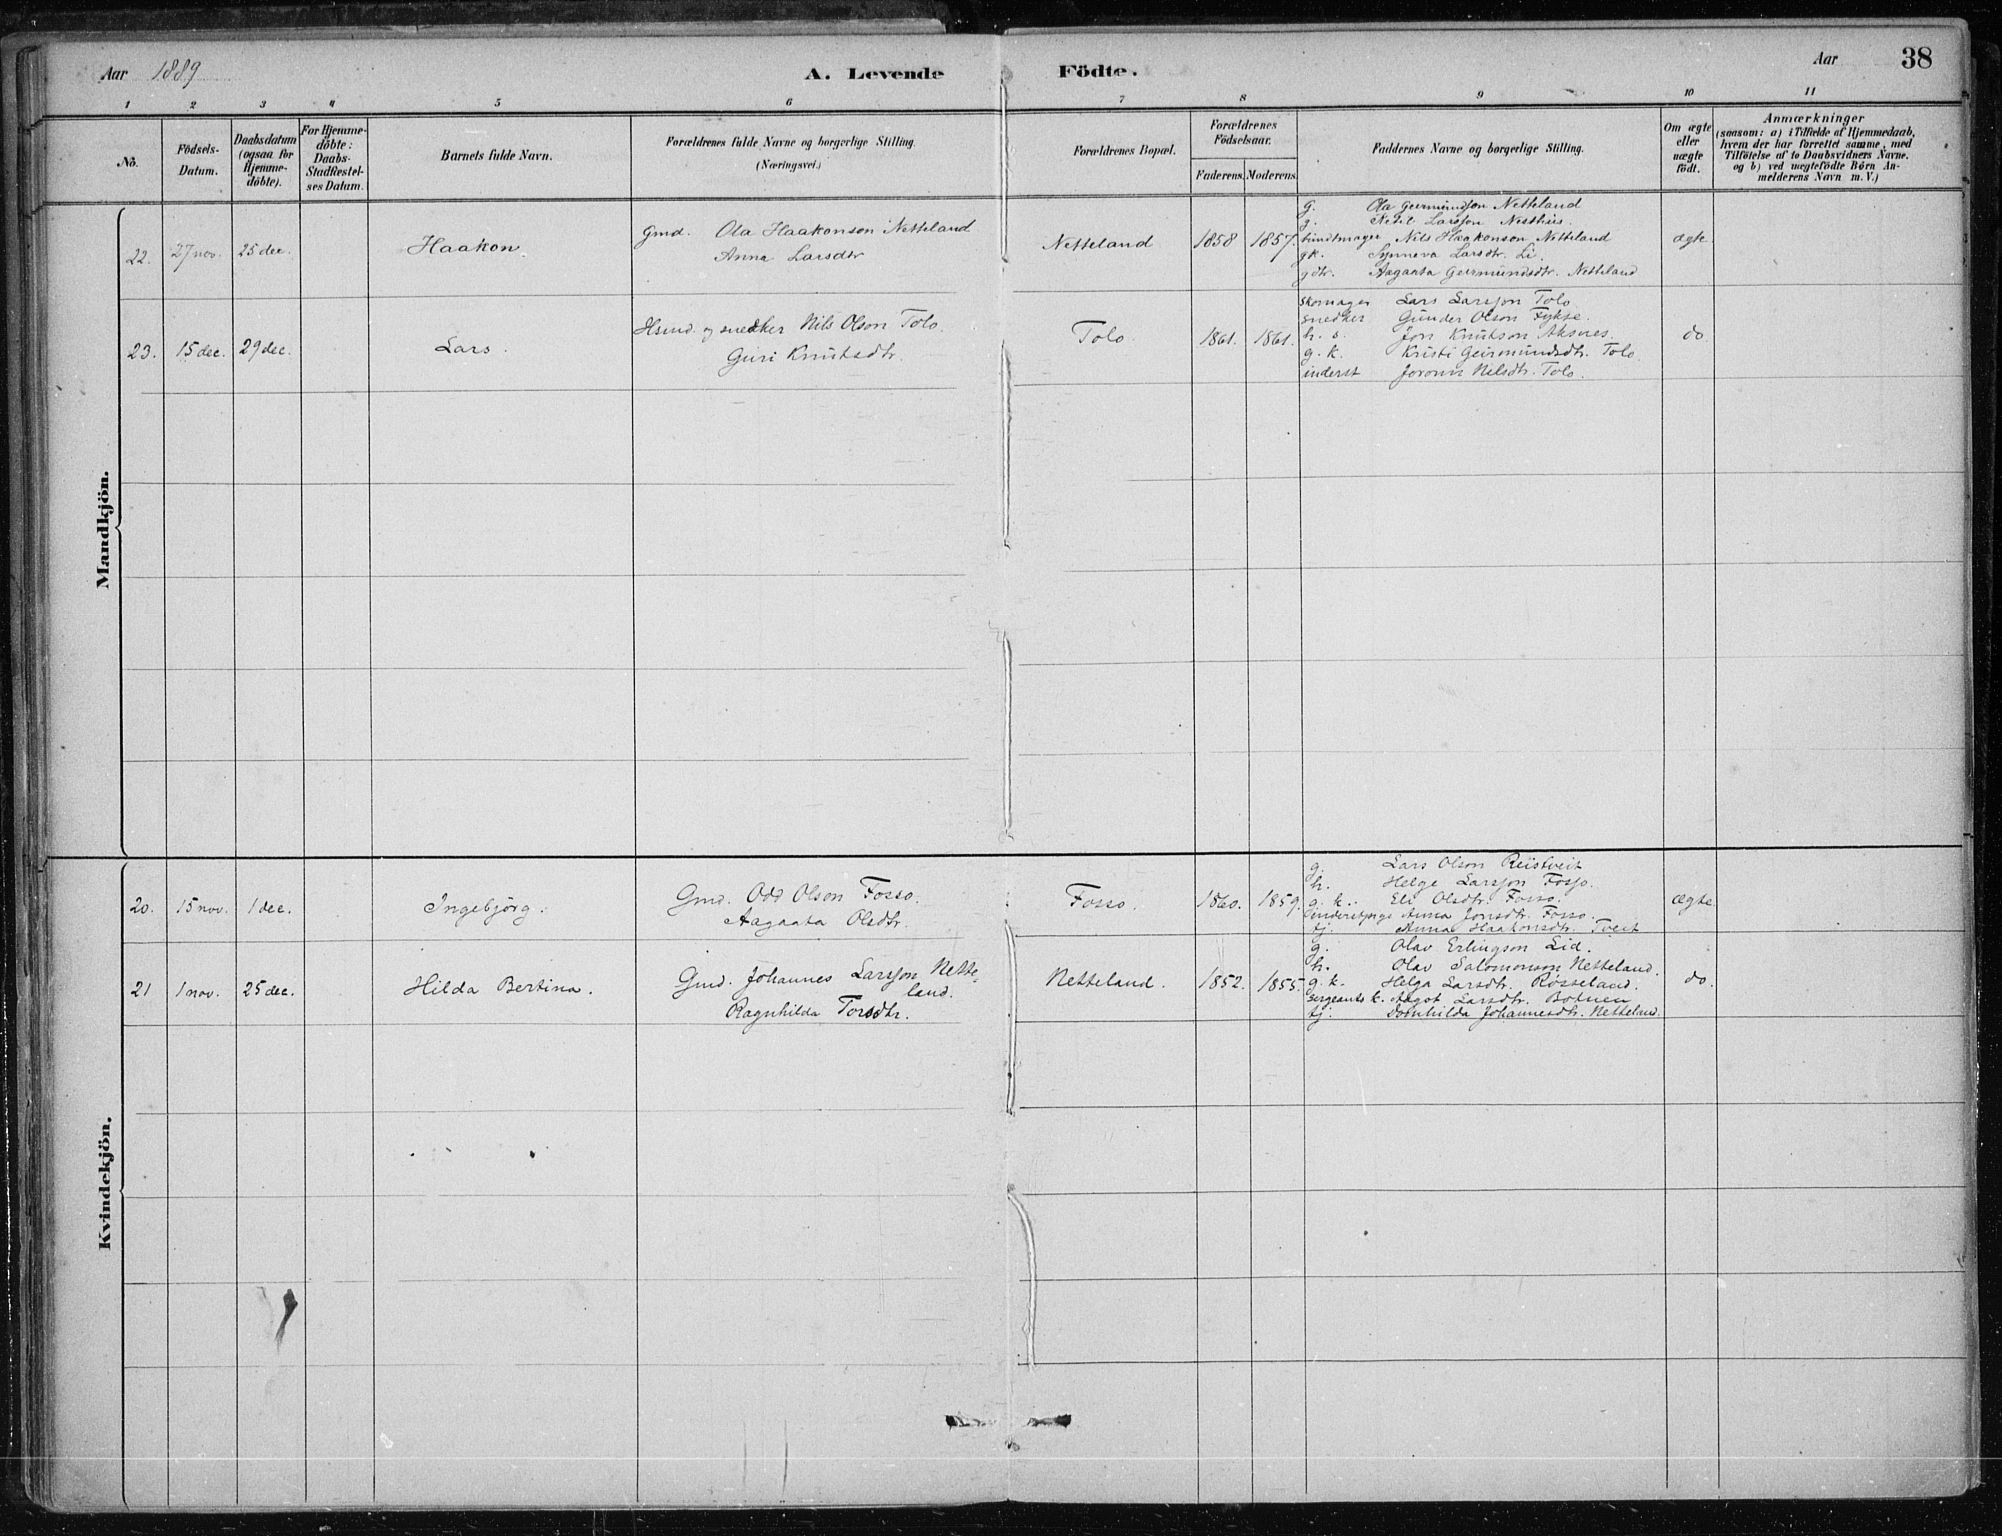 Aar 1889
A. Levende Födte.
Aar
38
1 2 3 4 5 6 7 8 9 10 11
No.
Födsels-Datum.
Daabsdatum (ogsaa for Hjemme-döbte).
For Hjemme-döbte: Daabs-Stadfæstel-ses Datum.
Barnets fulde Navn.
Forældrenes fulde Navne og borgerlige Stilling. (Næringsvei.)
Forældrenes Bopæl.
Forældrenes Födselsaar.
Faderens. Moderens.
Faddernes Navne og borgerlige Stilling.
Om ægte eller uægte födt.
Anmærkninger
(saasom: a) i Tilfælde af Hjemmedaab,
hvem der har forrettet samme, med
Tilföielse af to Daabsvidners Navne,
og b) ved uægtefödte Börn An-
melderens Navn m. V.)
Mandkjön.
22. 27 nov. 25 dec. Haakon
Gmd. Ola Haakonson Netteland
Anna Larsdtr
Netteland 1858 1857
g. Ola Geirmundson Netteland
g. Larsson Nesthus.
buntmager Nils Haakonson Netteland
gk. Synneva Larsdtr. Li.
gdtr. Aagaata Geirmundsdtr. Netteland
ægte
23. 15 dec. 29 dec. Lars.
Hsmd. og snedker Nils Olson Tolo.
Guri Knutsdtr.
Tolo 1861. 1861.
Skomager Lars Larsson Tolo
snedker Gunder Olson Fykse
h. s. Jon Knutson Aksnes.
g. k. Kristi Geirmundsdtr. Tolo
inderst Joronn Nilsdtr. Tolo.
do
Kvindekjön.
20. 15 nov. 1 dec. Ingebjörg.
Gmd. Odd Olson Fosso.
Aagaata Olsdtr.
Fosso. 1860. 1859.
g. Lars Olson Reistveit
h. Helge Larsson Fosso.
g. k. Eli Olsdtr. Fosso.
inderstpige Anna Jonsdtr. Fosso.
tj. Anna Haakonsdtr. Tveit
ægte
21 1 nov. 25 dec. Hilda Bertina.
Gmd. Johannes Larsson Nette-
land.
Ragnhilda Torsdtr.
Netteland. 1852. 1855.
g. Olav Erlingson Lid.
h. Olav Salomonson Netteland.
g. k. Helga Larsdtr. Røsseland.
sergeants k. Aagot Larsdtr. Botnen
tj. Domhilda Johannesdtr. Netteland.
do.